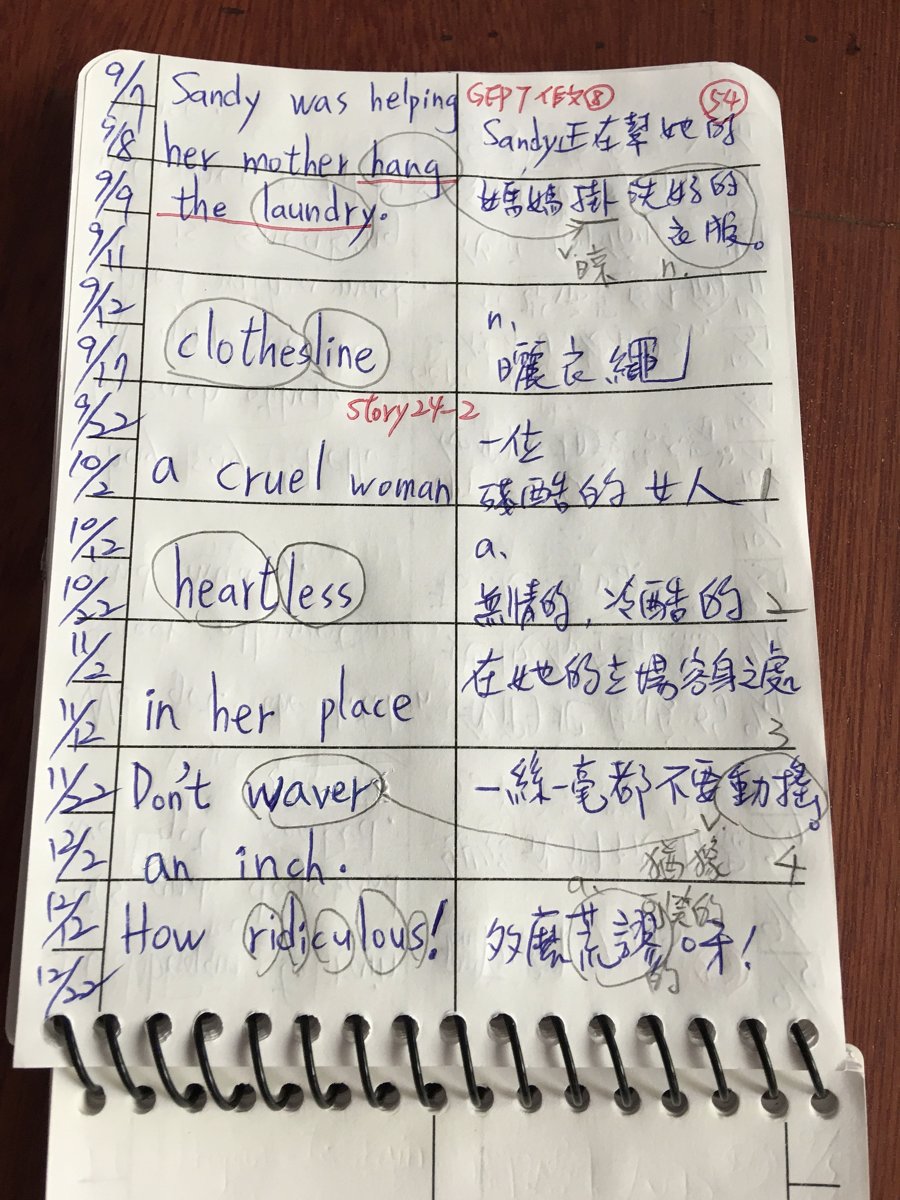 9/7
9/8
9/9
9/11
9/12
9/17
9/22
10/2
10/12
10/22
11/2
11/12
11/22
12/2
12/12
12/22
GEPT作文⑧
54
Sandy was helping
her mother hang
the laundry.
Sandy正在幫她的
媽媽掛洗好的
衣服。
v.晾
n.
clothesline
n.
曬衣繩
story 24-2
a cruel woman
一位
殘酷的女人
1
heartless
a.
無情的,冷酷的
2
in her place
在她的立場容身之處
3
Don't waver
an inch.
一絲一毫都不要動搖。
v.
猶豫
4
How ridiculous!
多麼荒謬呀!
a.
可笑的
的